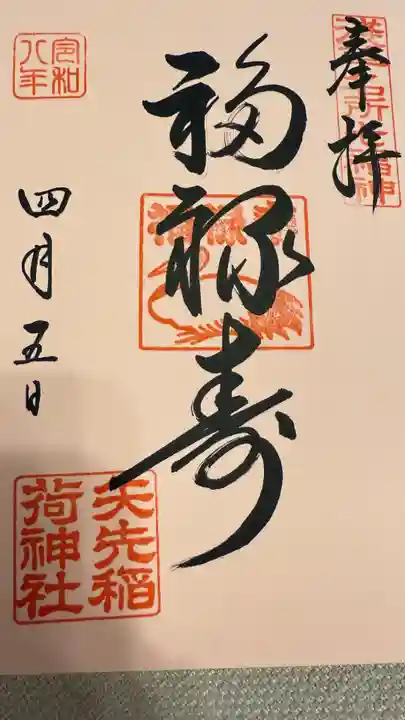 奉拝
福禄寿
令和
八年
四月五日
矢先稲
荷神社